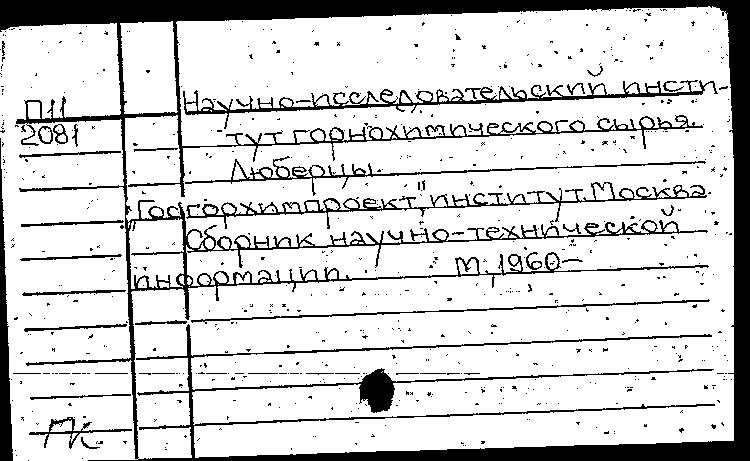 П11
2081
Научно-исследовательский инсти-
тут горнохимического сырья.
Люберцы.
"Госгорхимпроект", институт. Москва.
Сборник научно-технической
информации. М., 1960-
ГК